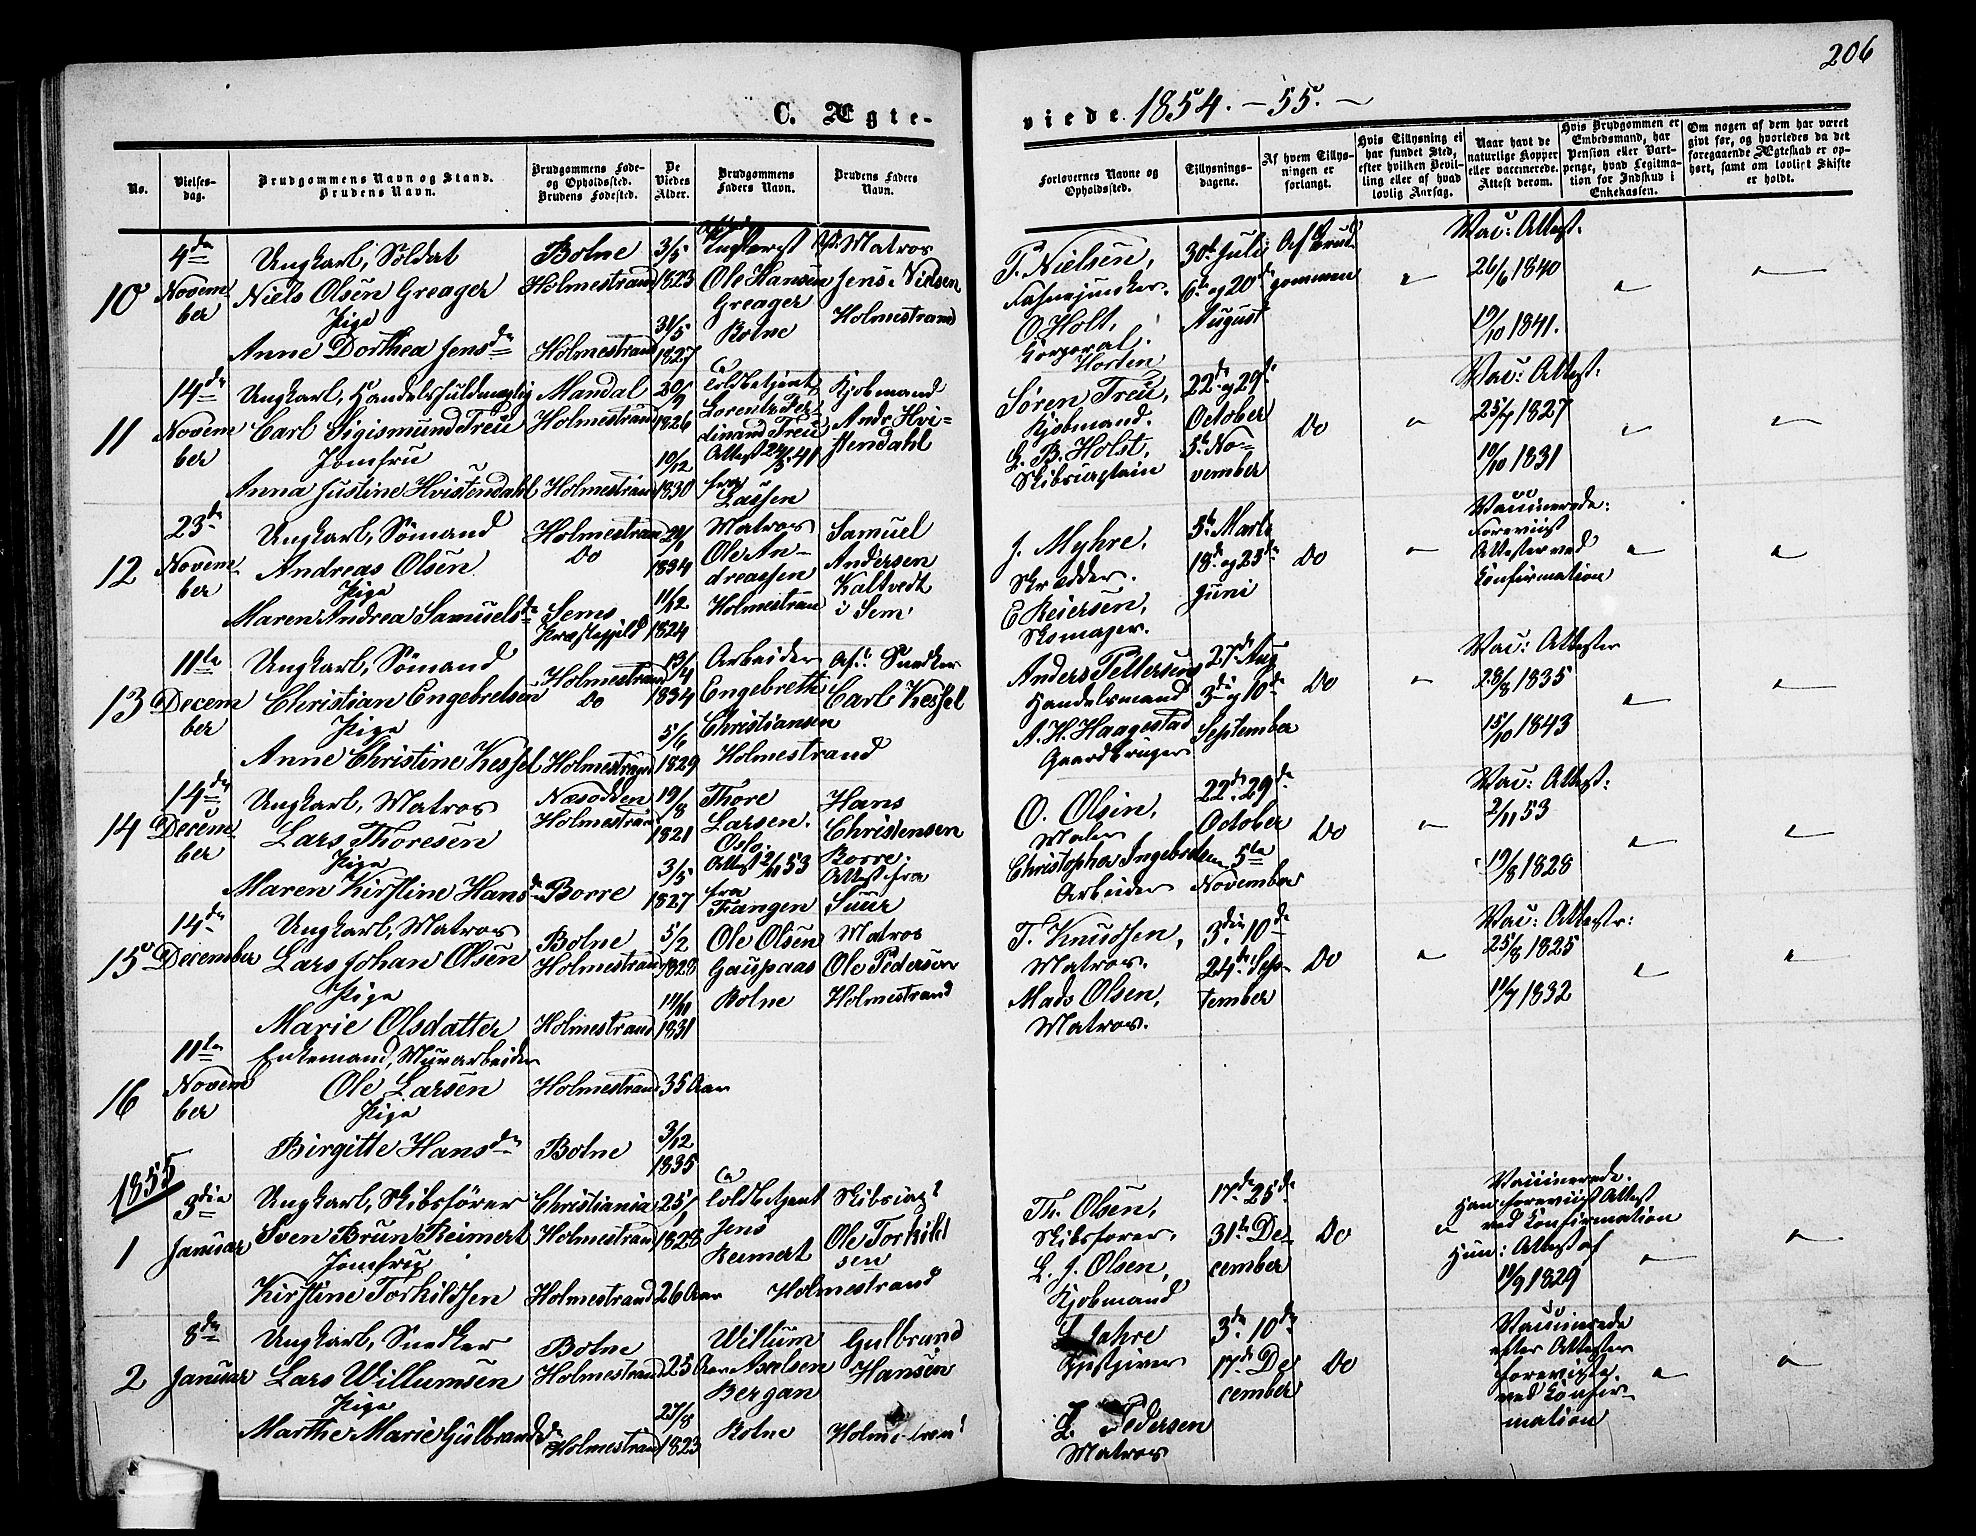 206
C. Ægte-
viede 1854. - 55. -
No.
Vielses-
dag.
Brudgommens Navn og Stand.
Brudens Navn.
Brudgommens Føde-
og Opholdssted.
Brudens Fødested.
De
Viedes
Alder.
Brudgommens
Faders Navn.
Brudens Faders
Navn.
Forlovernes Navne og
Opholdssted.
Tillysnings-
dagene.
Af hvem Tillys-
ningen er
forlangt.
Hvis Tillysning ei
har fundet Sted,
efter hvilken Bevil-
ling eller af hvad
lovlig Aarsag.
Naar havt de
naturlige Kopper
eller vaccinerede.
Attest derom.
Hvis Brudgommen er
Embedsmand, har
Pension eller Vart-
penge, hvad Legitima-
tion for Indskud i
Enkekassen.
Om nogen af dem har været
givt før, og hvorledes da det
foregaaende Ægteskab er op-
hørt, samt om lovligt Skifte
er holdt.
10
4de
Novem-
ber
Ungkarl, Soldat
Niels Olsen Greager
Pige
Anne Dorthea Jensdr
Botne
Holmestrand
Holmestrand
3/5
1823
31/5
1827
Ole Hansen
Greager
Botne
Matros
Jens Nielsen
Holmestrand
T. Nielsen,
Fahnejunker.
O. Holt,
Korporal.
Horten
30te Juli
6te og 20de
August
Af Brud-
gommen
"
Vac: Attest.
26/6 1840
19/10 1841.
"
"
11
14de
Novem
ber
Ungkarl, Handelsfuldmægtig
Carl Sigismund Treu
Jomfru
Anna Justine Hvistendahl
Mandal
Holmestrand
Holmestrand
20/9
1826
19/12
1830
Toldbetjent
Lorentz Fer-
dinand Treu
Attest 24/8 41
fra
Lassen
Kjøbmand
Andr. Hvi-
stendahl
Søren Treu,
Kjøbmand.
L. B. Holst,
Skibscaptain
22de og 29de
October
5te No-
vember
Do
"
Vac: Attest.
25/7 1827
10/10 1831
"
"
12
23de
Novem-
ber
Ungkarl, Sømand
Andreas Olsen
Pige
Maren Andrea Samuelsdr
Holmestrand
Do
Sems
Præstegjeld
1834
11/12
1824
Matros
Ole An-
dreassen
Holmestrand
Samuel
Andersen
Kaltvedt
i Sem
J. Myhre.
Skrædder.
E Reiersen,
Skomager.
5te Marts
18de og 25de
Juni
Do
"
Vaccinerede:
Foreviist
Attester ved
Confirmation
"
"
13
11te
Decem
ber
Ungkarl, Sømand
Christian Engebretsen
Pige
Anne Christine Kessel
Holmestrand
Do
Holmestrand
13/4
1834
5/6
1829
Arbeider
Engebreth
Christiansen
Holmestrand
Afd: Snedker
Carl Kessel
Anders Pettersen
Handelsmand
A. H. Haagestad
Gaardbruger
27de Aug
3die og 10de
September
Do
"
Vac: Attester
28/8 1835
15/10 1843
"
"
14
14de
Decem-
ber
Ungkarl, Matros
Lars Thoresen
Pige
Maren Kirstine Hansdr
Næsodden
Holmestrand
Borre
19/8
1821
3/5
1827
Thore
Larsen.
Oslo.
Attest 2/11 53
fra
Fangen
Hans
Christensen
Borre.
Attest fra
Suur
O. Olsen,
Maler
Christopher Ingebretsen
Arbeider
22de 29de
October
5te
November
Do
"
Vac: Attest:
2/11 53
19/8 1828
"
"
15
14de
December
Ungkarl, Matros
Lars Johan Olsen
Pige
Marie Olsdatter
Botne
Holmestrand
Holmestrand
5/2
1828
14/11
1831
Ole Olsen
Gauspaas
Botne
Matros
Ole Pedersen
Holmestrand
T. Knudsen,
Matros.
Mads Olsen,
Matros.
3die 10de
24de Sep-
tember
Do
"
Vac: Attestr:
25/8 1825
11/7 1832
"
"
16
11te
Novem
ber
Enkemand, Muurarbeider
Ole Larsen
Pige
Birgitte Hansdr
Holmestrand
Botne
35 Aar
3/12
1835
1855
1
3die
Januar
Ungkarl, Skibsfører
Sven Brun Reimert
Jomfru
Kirstine Torkildsen
Christiania
Holmestrand
Holmestrand
25/1
1828
26 Aar
Toldbetjent
Jens
Reimert
Ole Torkild
sen
Holmestrand
Th. Olsen,
Skibsfører.
L. J. Olsen,
Kjøbmand
17de 25de
31te De-
cember
Do
"
Vaccinerede.
Han foreviist Attest
ved Confirmation
Hun: Attest af
11/9 1829
"
"
2
8de
Januar
Ungkarl, Snedker
Lars Willumsen
Pige
Marthe Marie Gulbrandsdr
Botne
Holmestrand
Holmestrand
25 Aar
27/8
1823
Willum
Axelsen
Bergan
Botne
Gulbrand
Hansen
Holmestrand
Jahre
Gjestgiver
L. Pedersen
Matros
3die 10de
17de De
cember
Do
Vaccinerede
efter Attester
foreviste
ved Confir-
mation
"
"